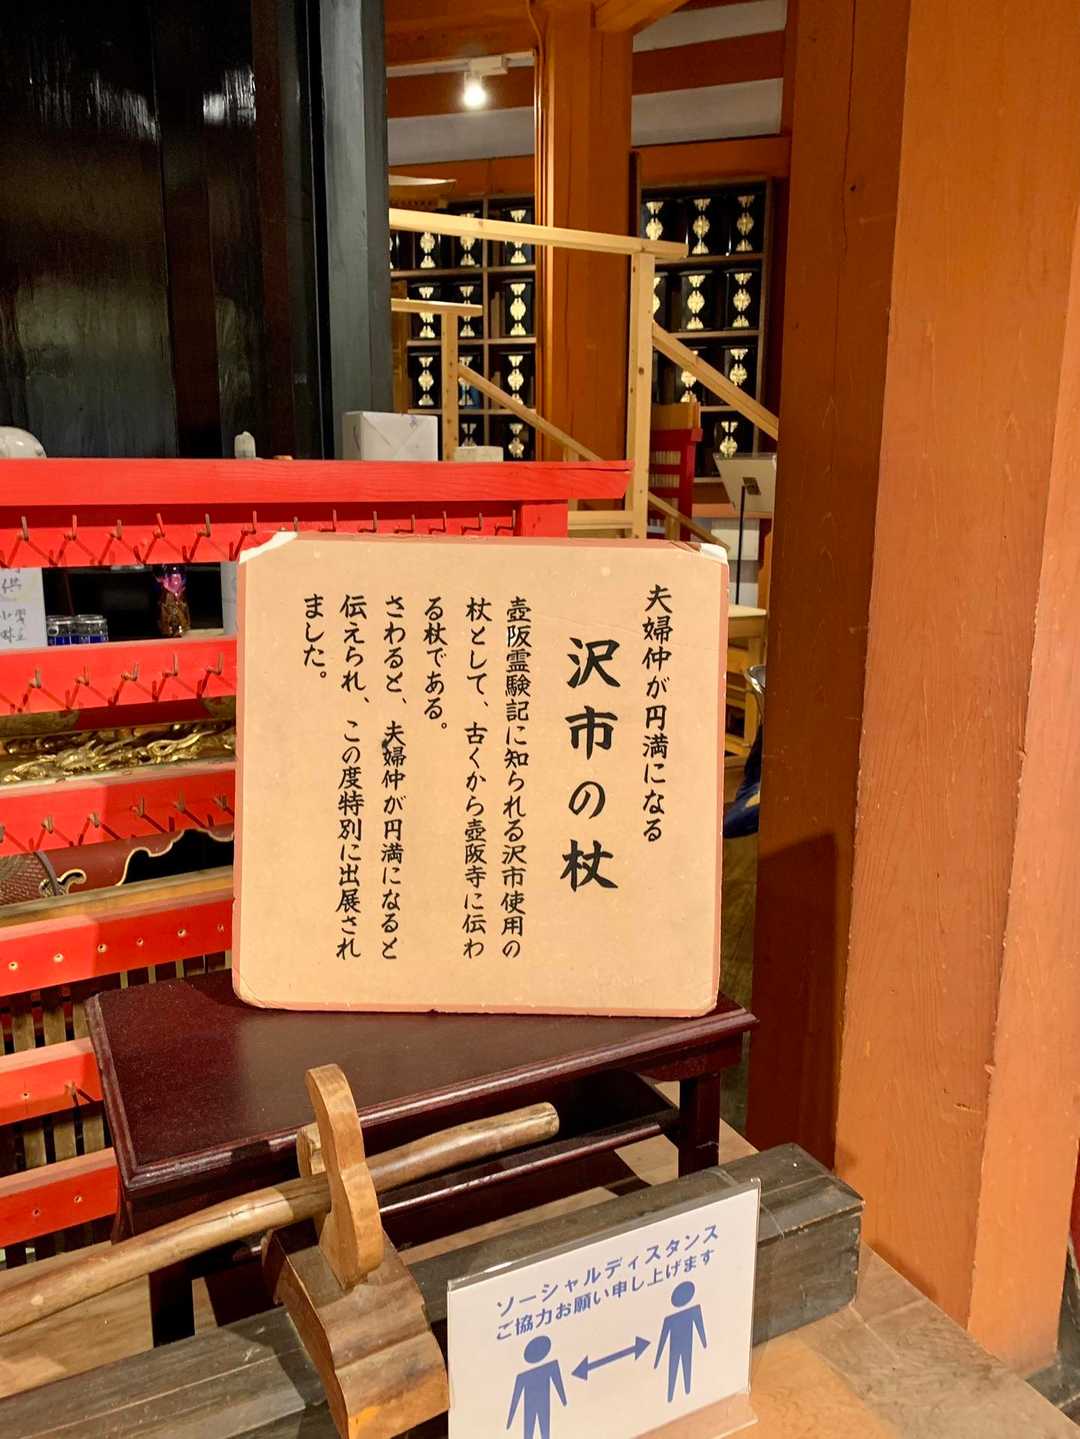 夫婦仲が円満になる
沢市の杖
壺阪霊験記に知られる沢市使用の
杖として、古くから壺阪寺に伝わ
る杖である。
さわると、夫婦仲が円満になると
伝えられ、この度特別に出展され
ました。
ソーシャルディスタンス
ご協力お願い申し上げます